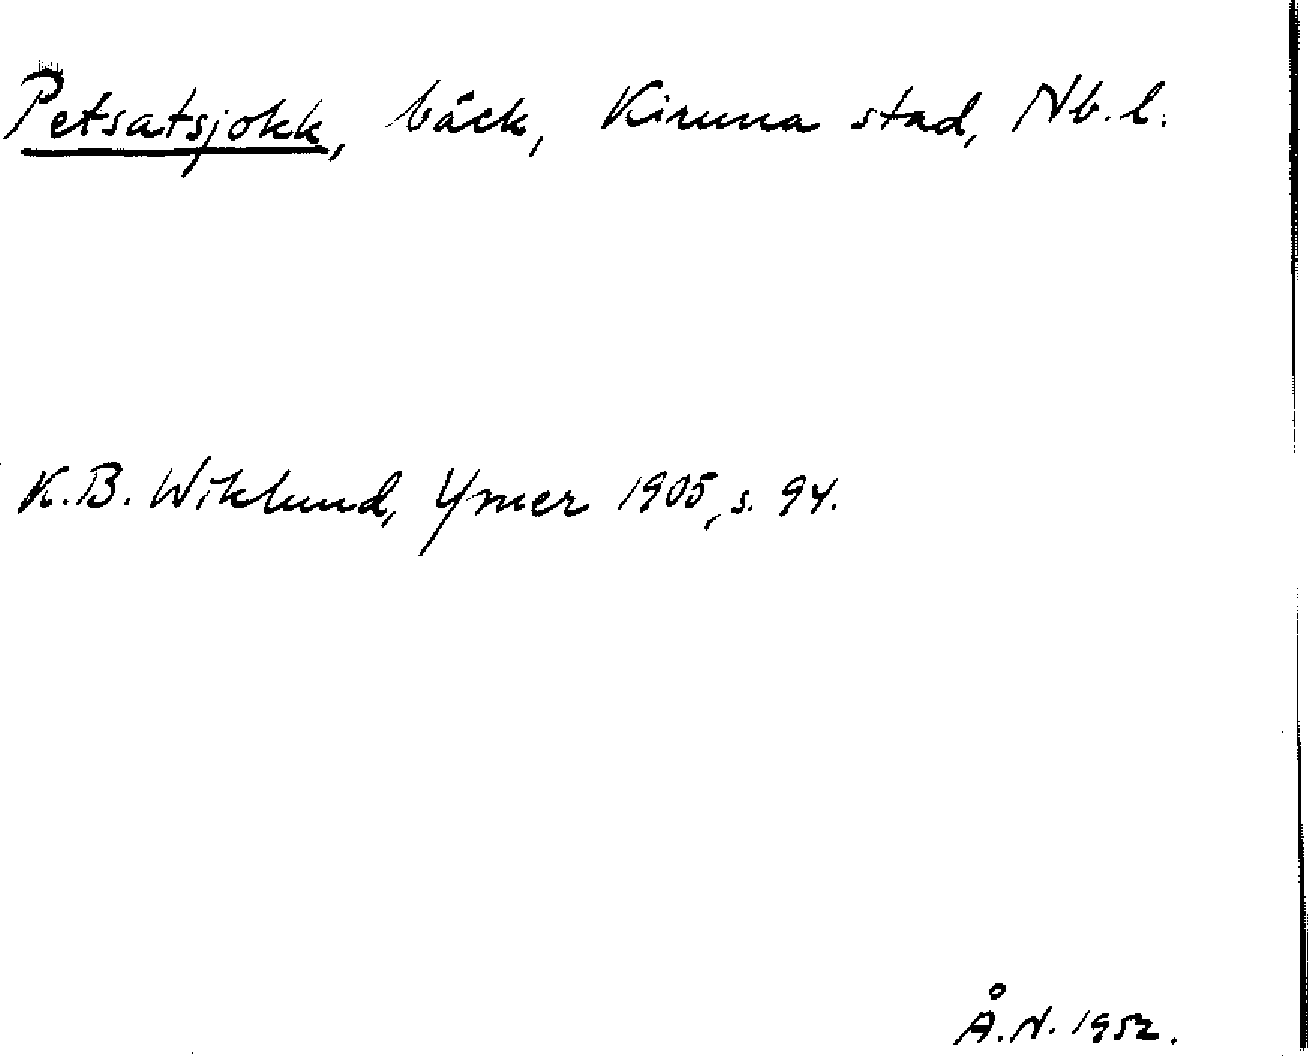 Petsatsjokk, bäck, Kiruna stad, Nb. l.
K.B. Wiklund, Ymer 1905, s. 94.
Å.N. 1952.